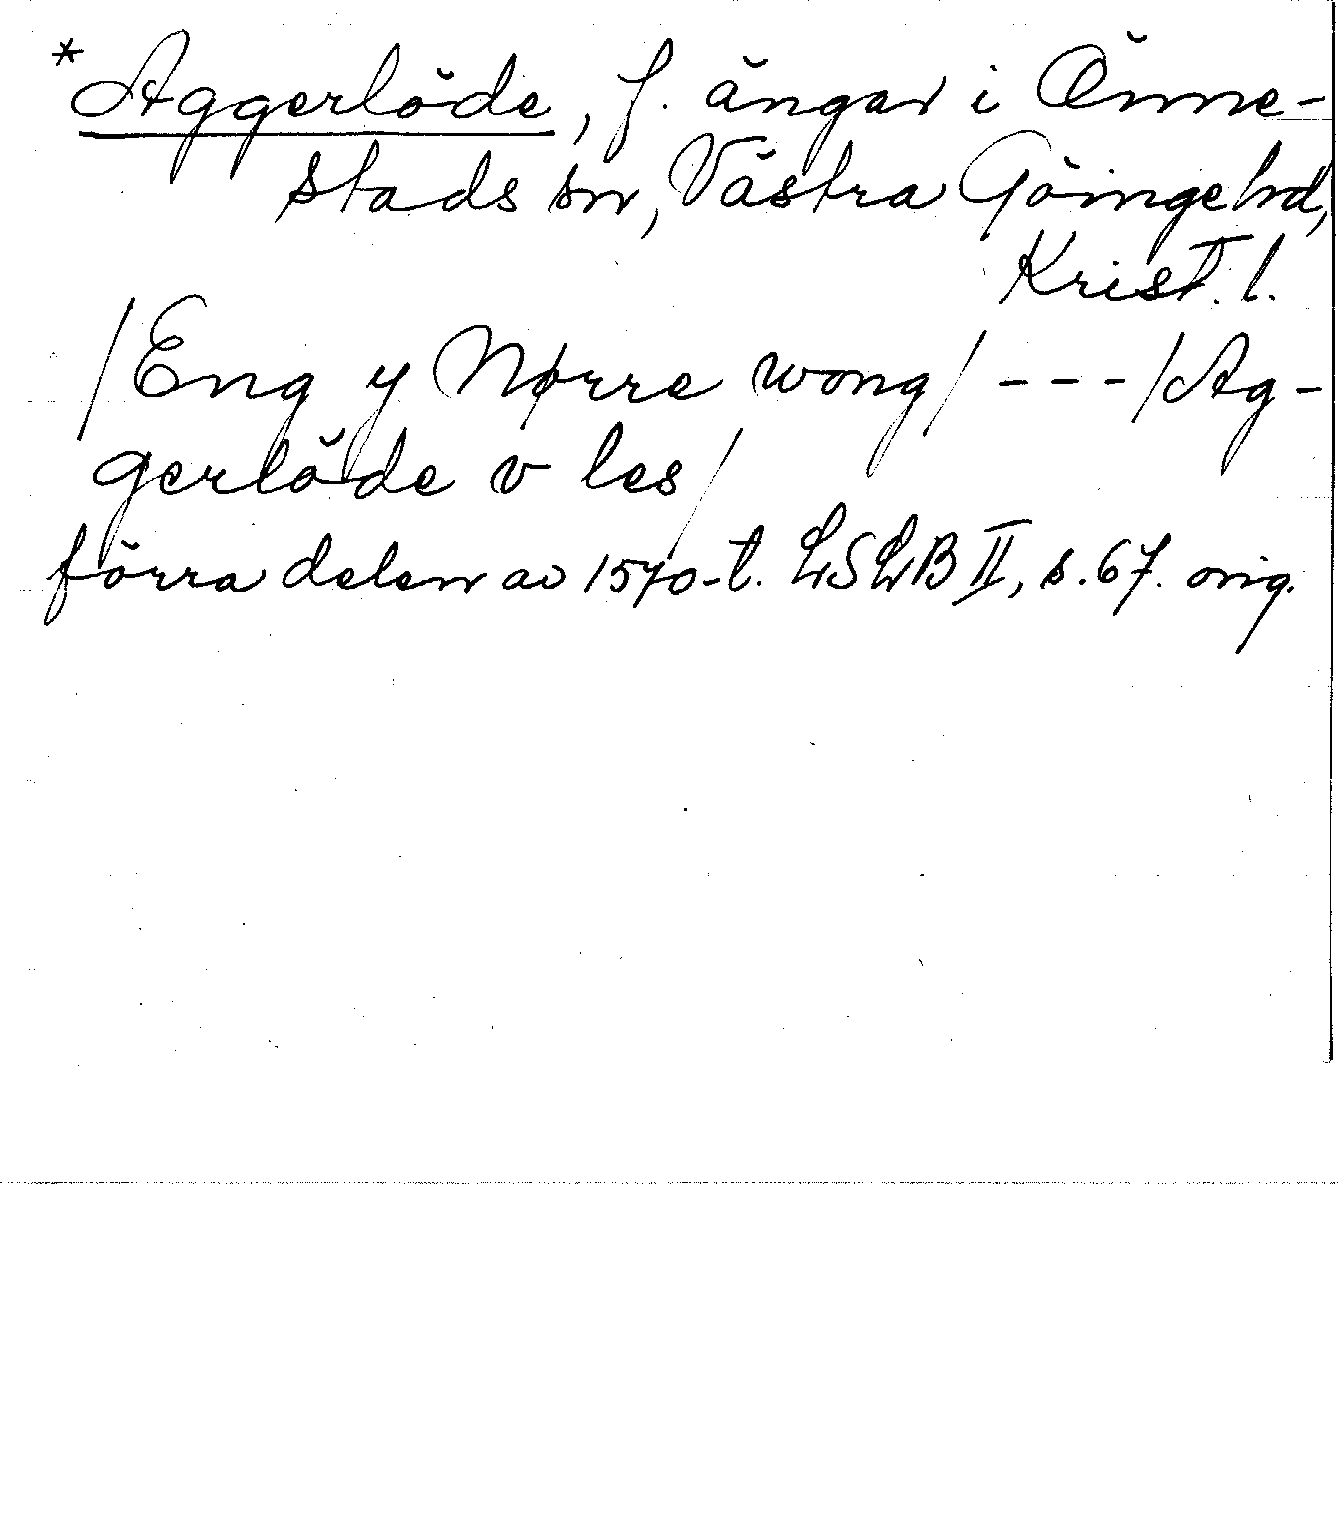 *Aggerlöde, f. ängar i Önne-
stads sn, Västra Göinge hd,
Krist. l.
/Eng y Nørre wong/ - - - /Ag-
gerlöde v les/
förra delen av 1570-t. LSLB II, s. 67. orig.